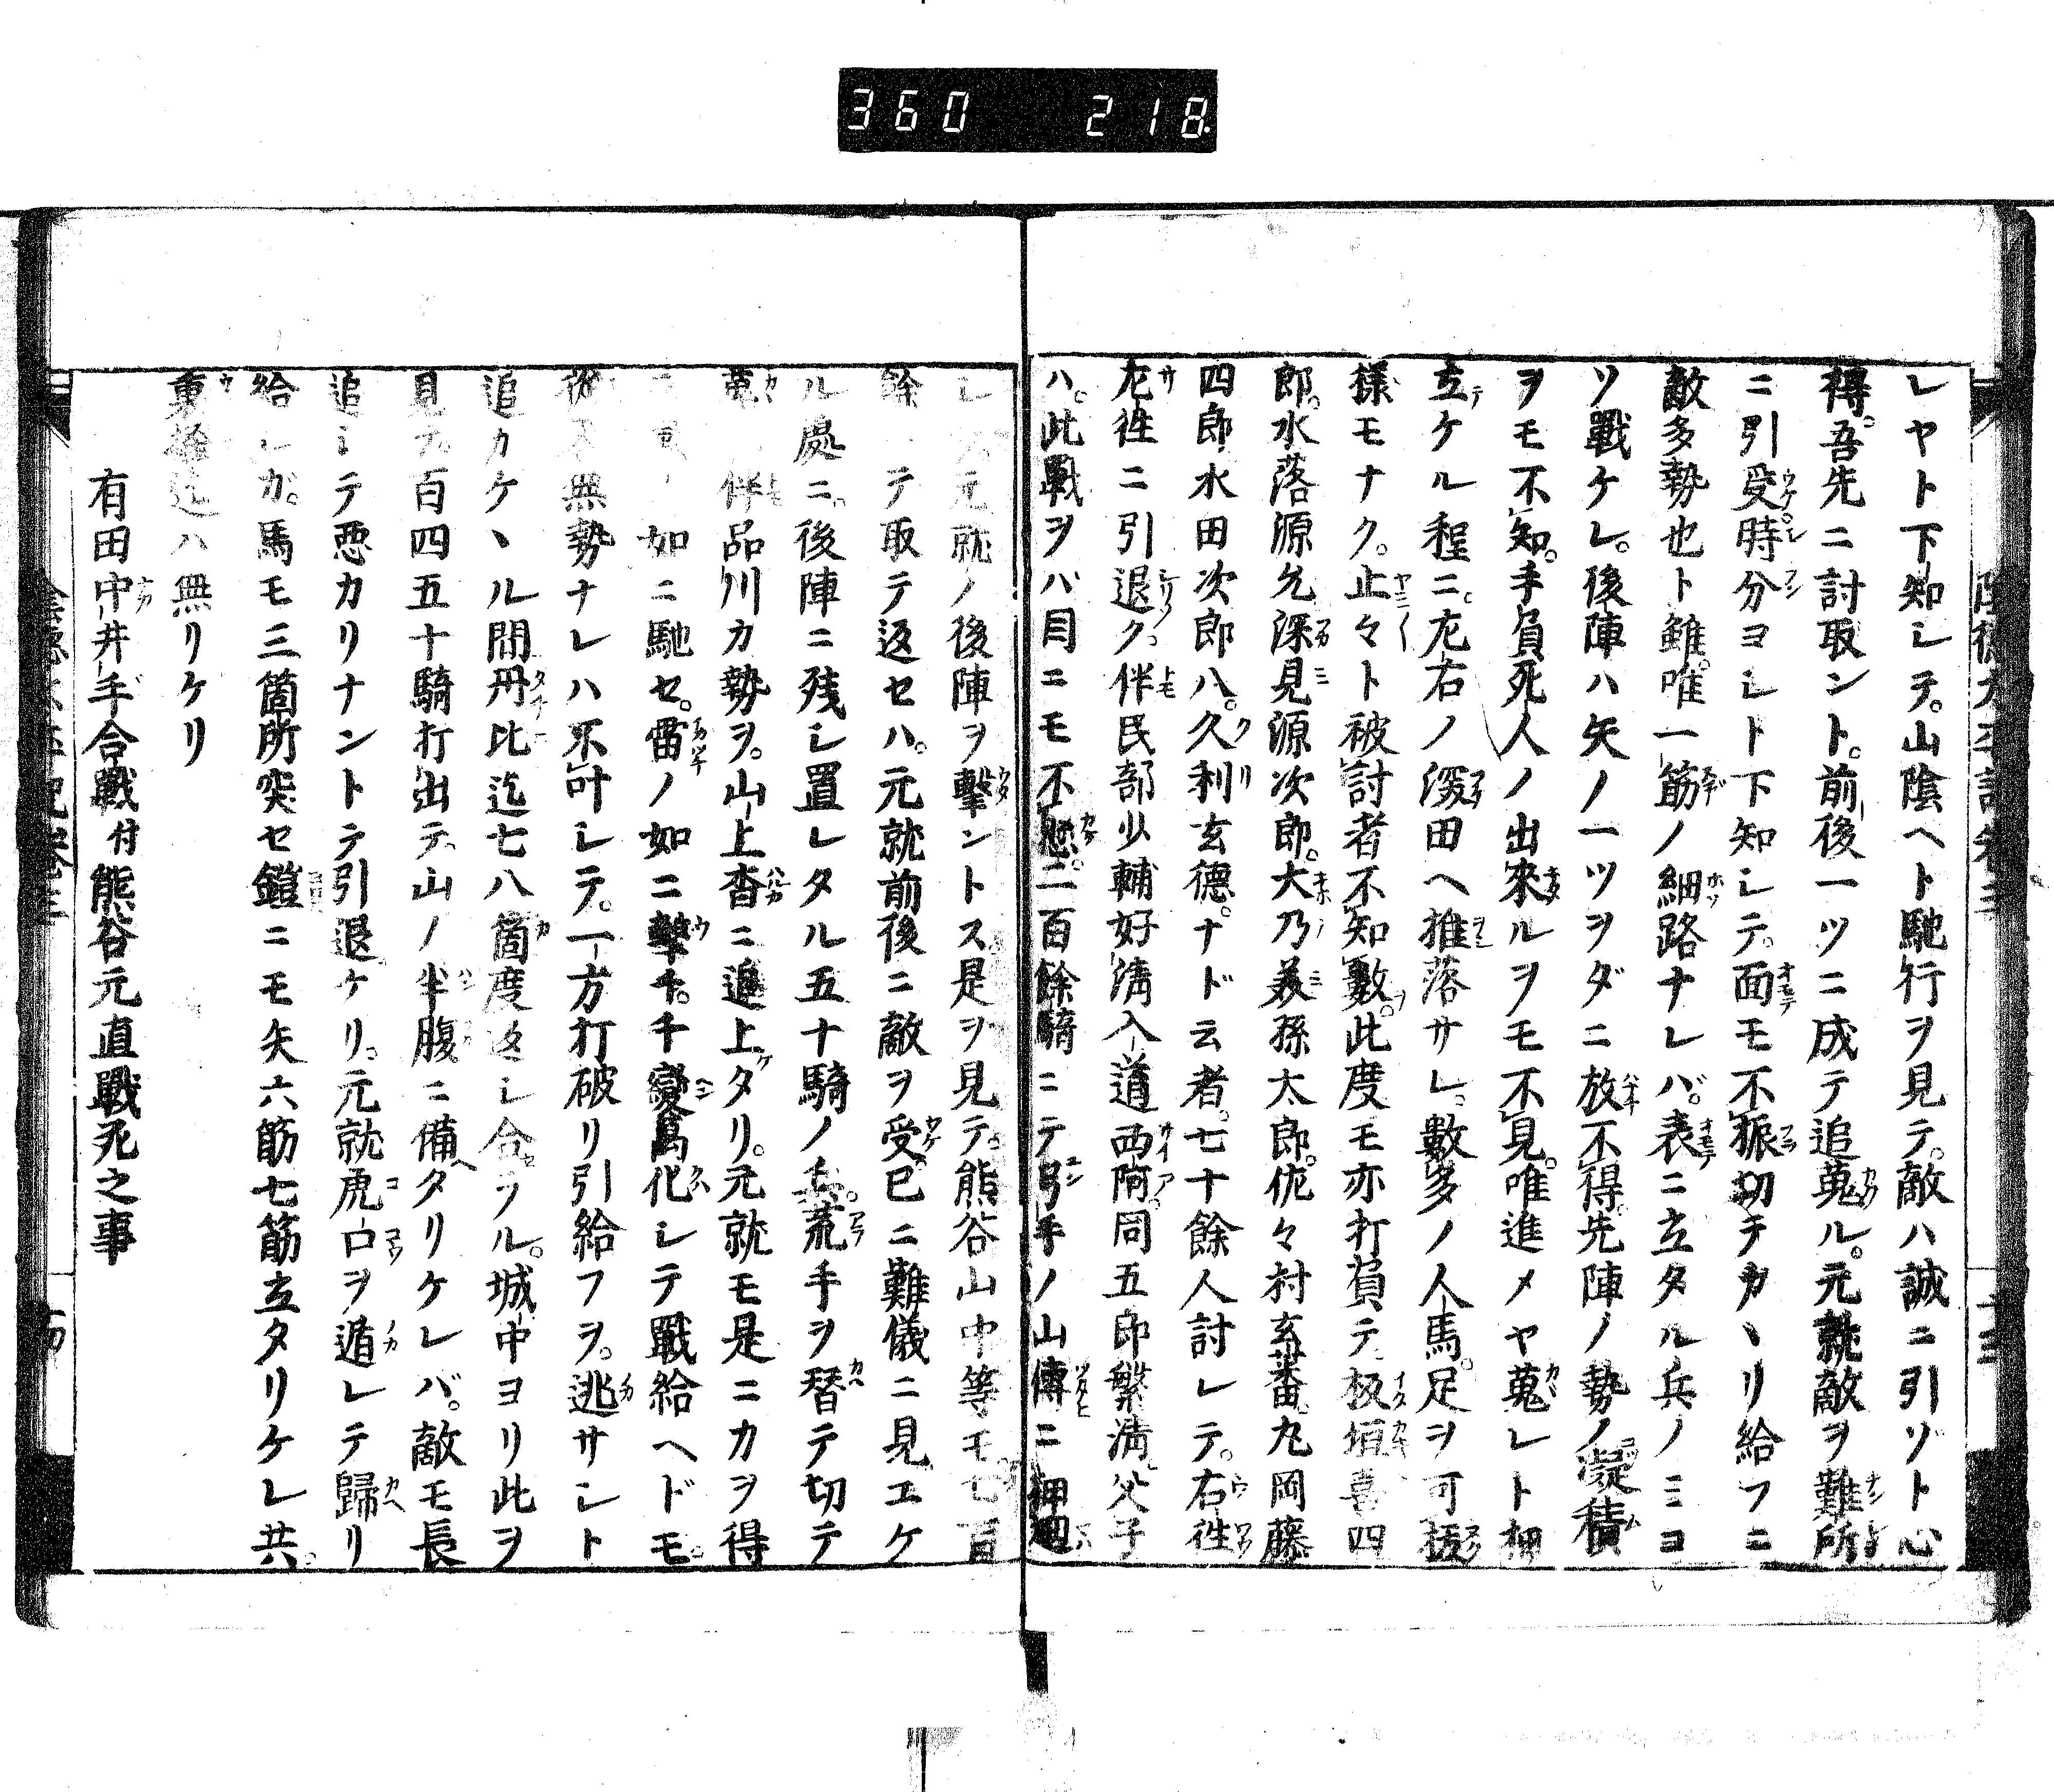 360 218
レヤト下知シテ。山陰ヘト馳行ヲ見テ。敵ハ誠ニ引ゾト心
得。吾先ニ討取ント。前後一ツニ成テ追蒐ル。元就敵ヲ難所
ニ引受。時分ヨシト下知シテ。面モ不振切テカヽリ給フニ
敵多勢也ト雖。唯一筋ノ細路ナレバ。表ニ立タル兵ノミヨ
ソ戰ケレ。後陣ハ矢ノ一ツヲダニ放不得。先陣ノ勢ノ凝積
ヲモ不知。手負死人ノ出來ルヲモ不見。唯進メヤ蒐レト押
立ケル程ニ。左右ノ深田ヘ推落サレ。數多ノ人馬。足ヲ可拔
樣モナク。止々ト被討者不知數。此度モ亦打負テ。板垣喜四
郎。水落源允。深見源次郎。大乃美孫太郎。佐々村玄蕃。九岡藤
四郎。水田次郎八。久利玄德。ナド云者。七十餘人討レテ。右往
左往ニ引退ク。伴民部少輔好淸入道西阿。同五郎繁淸父子
ハ。此戰ヲバ目ニモ不懸。二百餘騎ニテ弓手ノ山傳ニ押廻
シ。元就ノ後陣ヲ擊ントス。是ヲ見テ。熊谷山中等モ。七百
餘 テ取テ返セハ。元就前後ニ敵ヲ受。已ニ難儀ニ見エケ
ル處ニ。後陣ニ残シ置レタル五十騎ノ兵。荒手ヲ替テ切テ
蒐 伴品川カ勢ヲ。山上沓ニ追上タリ。元就モ是ニカヲ得
ノ如ニ馳セ。雷ノ如ニ擊チ。千變萬化シテ戰給ヘドモ。
從 無勢ナレハ不叶シテ。一方打破リ引給フヲ。逃サシト
追カケヽル間丹比迄七八箇度返シ合セラル。城中ヨリ此ヲ
見テ百四五十騎打出テ。山ノ半腹ニ備ヘタリケレバ。敵モ長
追シテ悪カリナントテ引退ケリ。元就虎口ヲ遁レテ歸リ
給シガ。馬モ三箇所突セ鎧ニモ矢六筋七筋立タリケレ共。
重 迄ハ無リケリ
有田中井手合戰付熊谷元直戰死之事